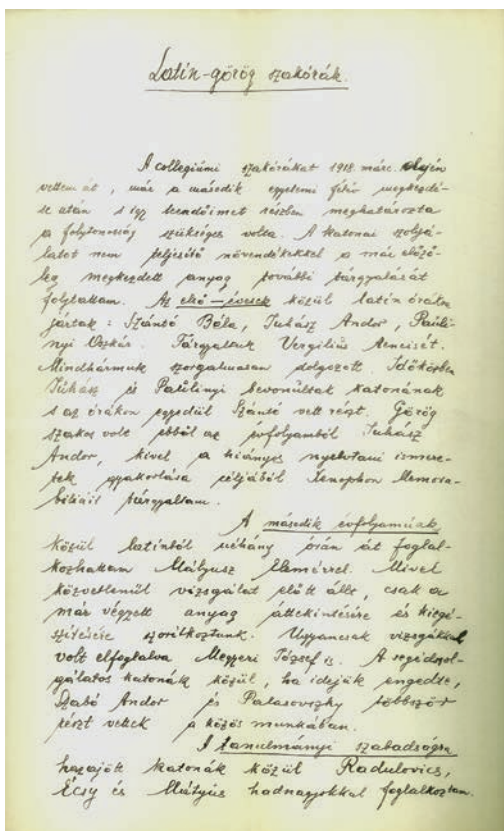 Latin-görög szakórák.
A collegiumi szakórákat 1918. márc. elején
vettem át, már a második egyetemi félév megkezdé-
se után s így teendőimet részben meghatározta
a folytonosság szükséges volta. A katonai szolgá-
latot nem teljesítő növendékekkel a már előző-
leg megkezdett anyag további tárgyalását
folytattam. Az első-évesek közül latin órákra
jártak: Szántó Béla, Juhász Andor, Pauli-
nyi Oszkár. Tárgyaltuk Vergilius Aeneisét.
Mindhármuk szorgalmasan dolgozott. Időközben
Juhász és Paulinyi bevonultak katonának
s az órákon egyedül Szántó vett részt. Görög
szakos volt ebből az évfolyamból Juhász
Andor, kivel a hiányos nyelvtani ismere-
tek gyakorlása céljából Xenophon Memora-
biliáit tárgyaltam.
A második évfolyamúak
közül latinból néhány órán át foglal-
kozhattam Mályusz Elemérrel. Mivel
közvetlenül vizsgálat előtt állt, csak a
már végzett anyag áttekintésére és kiegé-
szítésére szorítkoztunk. Ugyancsak vizsgákkal
volt elfoglalva Megyeri József is. A segédszol-
gálatos katonák közül, ha idejük engedte,
Szabó Andor és Palasovszky többször
részt vettek a közös munkában.
A tanulmányi szabadságra
hazajött katonák közül Radulovics,
Écsy és Mátyás hadnagyokkal foglalkoztam.